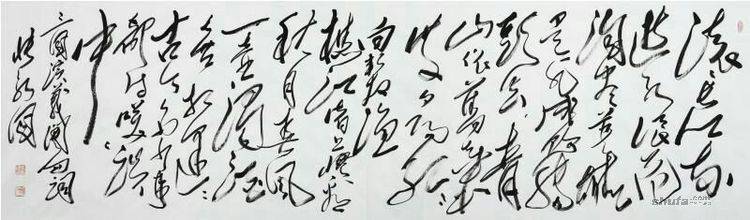 滚滚长江东
逝水浪花
淘尽英雄
是非成败转
头空青
山依舊在几
度夕阳红
白发渔
樵江渚上惯看
秋月春风
一壶浊酒
喜相逢
古今多少事
都付笑谈
中
三國演義